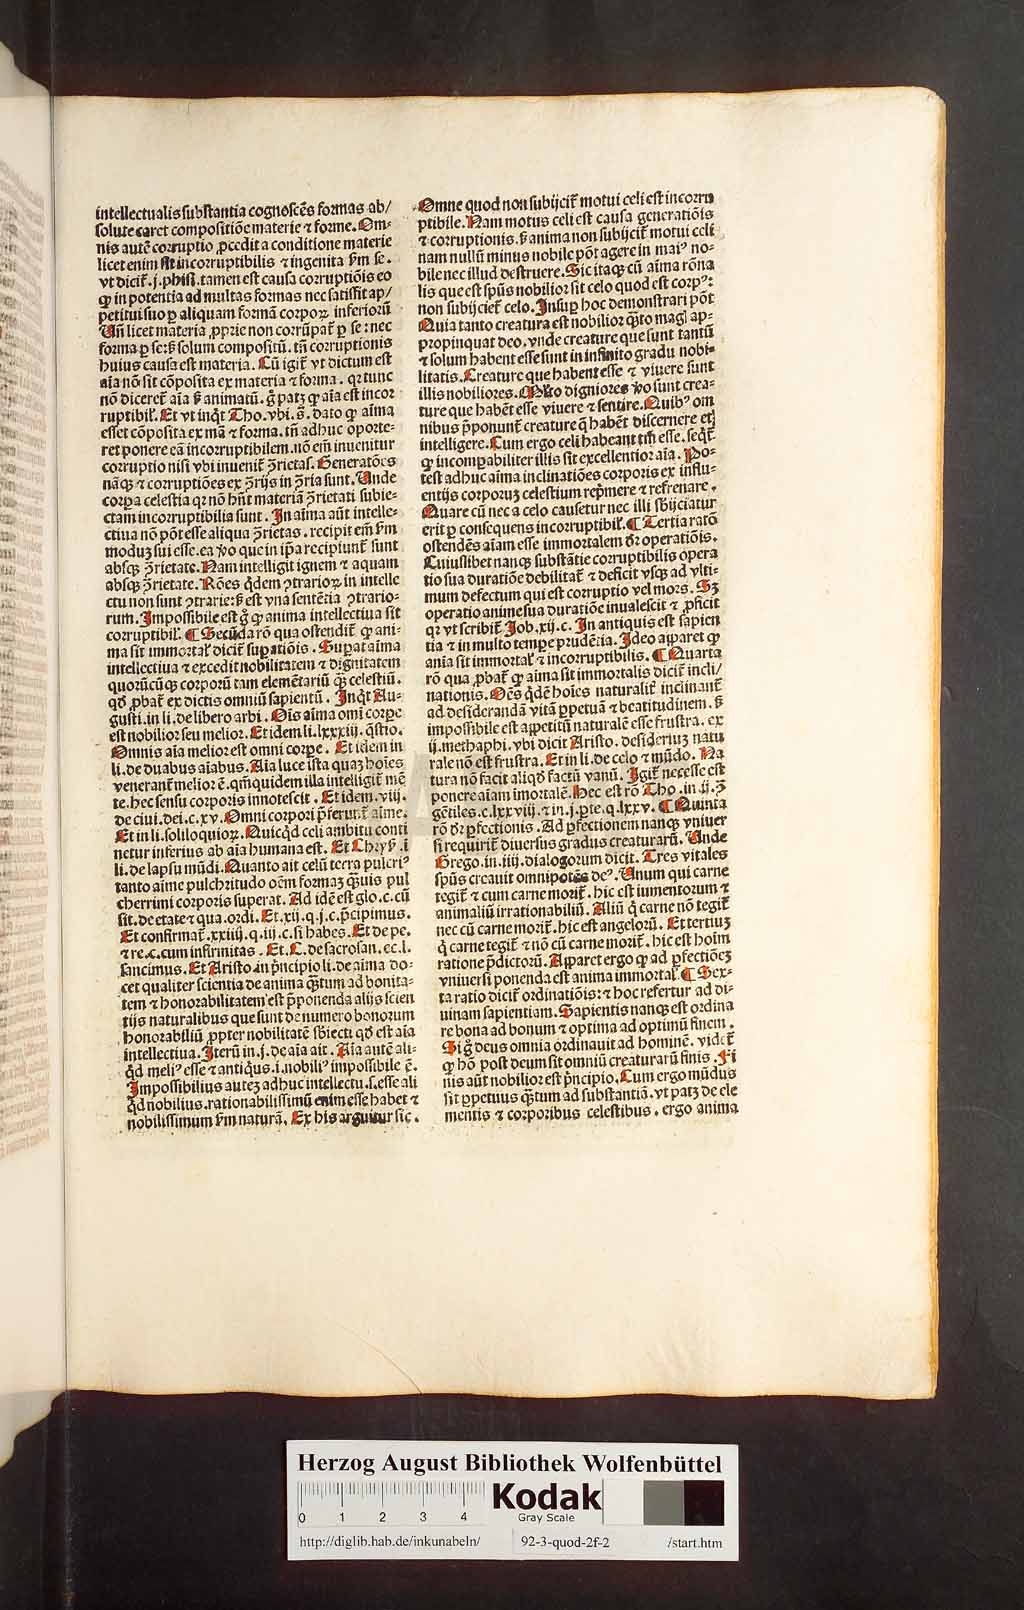 intellectualis substantia cognoscēs formas ab/
solute caret compositiōe materie ⁊ forme. Om-
nis autē corruptio ꝓcedit a conditione materie
licet enim sit incorruptibilis ⁊ ingenita ẜm se.
vt dicit̄.j.phisi.tamen est causa corruptiōis eo
ꝙ in potentia ad multas formas nec satisfit ap/
petitui suo ꝑ aliquam formā corpoꝝ inferiorū
Un̄ licet materia ꝓprie non corrūpat̄ ꝑ se: nec
forma ꝑ se: sꝫ solum compositū. tn̄ corruptionis
huius causa est materia. Cū igit̄ vt dictum est
aīa nō sit cōposita ex materia ⁊ forma. qꝛ tunc
nō diceret̄ aīa sꝫ animatū. g̊ patꝫ ꝙ aīa est incor
ruptibil̓. Et vt inq̄t Tho. vbi. s̄. dato ꝙ aīma
esset cōposita ex mā ⁊ forma. tn̄ adhuc oporte-
ret ponere eā incorruptibilem. nō em̄ inuenitur
corruptio nisi vbi inuenit̄ ꝯrietas. Generatōes
nāqꝫ ⁊ corruptiōes ex ꝯrijs in ꝯria sunt. Unde
corꝑa celestia qꝛ nō hn̄t materiā ꝯrietati subie-
ctam incorruptibilia sunt. In aīma aūt intelle-
ctiua nō pōt esse aliqua ꝯrietas. recipit em̄ ẜm
moduꝫ sui esse. ea ꝟo que in ip̄a recipiunt̄ sunt
absqꝫ ꝯrietate. Nam intelligit ignem ⁊ aquam
absqꝫ ꝯrietate. Rōes q̄dem ꝯtrarioꝝ in intelle
ctu non sunt ꝯtrarie: sꝫ est vna sentētia ꝯtrario-
rum. Impossibile est g̊ ꝙ anima intellectiua sit
corruptibil̓. ¶ Secūda rō qua ostendit̄ ꝙ ani-
ma sit immortal̓ dicit̄ suꝑatiōis. Suꝑat aīma
intellectiua ⁊ excedit nobilitatem ⁊ dignitatem
quorūcūqꝫ corporū tam elemētariū qꝫ celestiū.
qd̓ ꝓbat̄ ex dictis omniū sapientū. Inq̄t Au-
gusti. in li. de libero arbi. Ois aīma omī corꝑe
est nobilior seu melior. Et idem li. lxxxiij. q̄stio.
Omnis aīa melior est omni corꝑe. Et idem in
li. de duabus aīabus. Aīa luce ista quaꝫ hoīes
venerant̄ melior ē. qm̄ quidem illa intelligit̄ mē
te. hec sensu corporis innotescit. Et idem. viij.
de ciui. dei. c. xv. Omni corpori p̄ferunt̄ aīme.
Et in li. soliloquioꝝ. Quicq̄d celi ambitu conti
netur inferius ab aīa humana est. Et Chrys. ī
li. de lapsu mūdi. Quanto ait celū terra pulcri⁹
tanto aīme pulchritudo oēm formaꝫ qꝫuis pul
cherrimi corporis superat. Ad idē est glo. c. cū
sit. de etate ⁊ qua. ordi. Et. xij. q. j. c. p̄cipimus.
Et confirmat̄. xxiiij. q. iij. c. si habes. Et de pe.
⁊ re. c. cum infirmitas. Et. C. de sacrosan. ec. l.
sancimus. Et Aristo. in p̄ncipio li. de aīma do-
cet qualiter scientia de anima qꝫtum ad bonita-
tem ⁊ honorabilitatem est p̄ponenda alijs scien
tijs naturalibus que sunt de numero bonorum
honorabiliū ꝓpter nobilitatē sb̄iecti qd̓ est aīa
intellectiua. Iterū in. j. de aīa ait. Aīa autē ali-
q̄d meli⁹ esse ⁊ antiq̄us. i. nobili⁹ impossibile ē.
Impossibilius auteꝫ adhuc intellectu. s. esse ali
q̄d nobilius. rationabilissimū enim esse habet ⁊
nobilissimum ẜm naturā. Ex his arguitur sic.
Omne quod non subijcit̄ motui celi est incorru
ptibile. Nam motus celi est causa generatiōis
⁊ corruptionis. sꝫ anima non subijcit̄ motui celi
nam nullū minus nobile pōt agere in mai⁹ no-
bile nec illud destruere. Sic itaqꝫ cū aīma rōna
lis que est spūs nobilior sit celo quod est corp⁹:
non subijciet̄ celo. Insuꝑ hoc demonstrari pōt
Quia tanto creatura est nobilior qꝫto magꝭ ap-
propinquat deo. vnde creature que sunt tantū
⁊ solum habent esse sunt in infinito gradu nobi-
litatis. Creature que habent esse ⁊ viuere sunt
illis nobiliores. Multo digniores ꝟo sunt crea-
ture que habēt esse viuere ⁊ sentire. Quib⁹ om
nibus p̄ponunt̄ creature q̄ habēt discernere et
intelligere. Cum ergo celi habeant tm̄ esse. seq̄t̄
ꝙ incomꝑabiliter illis sit excellentior aīa. Po-
test adhuc aīma inclinatiōes corporis ex influ-
entijs corporuꝫ celestium rep̄mere ⁊ refrenare.
Quare cū nec a celo causetur nec illi sb̄ijciatur
erit ꝑ consequens incorruptibil̓. ¶ Tertia ratō
ostendēs aīam esse immortalem dr̄ operatiōis.
Cuiuslibet nanqꝫ substātie corruptibilis opera
tio sua duratiōe debilitat̄ ⁊ deficit vsqꝫ ad vlti-
mum defectum qui est corruptio vel mors. Sꝫ
operatio anime sua duratiōe inualescit ⁊ ꝓficit
qꝛ vt scribit̄ Iob. xij. c. In antiquis est sapien
tia ⁊ in multo tempe prudētia. Ideo apparet ꝙ
anīa sit immortal̓ ⁊ incorruptibilis. ¶ Quarta
rō qua ꝓbat̄ ꝙ aīma sit immortalis dicit̄ incli/
nationis. Oēs q̄dē hoīes naturalit̄ inclinant̄
ad desiderandā vitā ꝑpetuā ⁊ beatitudinem. sꝫ
impossibile est appetitū naturale esse frustra. ex
ij. methaphi. vbi dicit Aristo. desideriuꝫ natu
rale nō est frustra. Et in li. de celo ⁊ mūdo. Na
tura nō facit aliqd̓ factū vanū. Igit̄ necesse est
ponere aīam imortalē. Hec est rō Tho. in. ij. ꝯ
gētiles. c. lxxviij. ⁊ in. j. ꝑte. q. lxxv. ¶ Quinta
rō dr̄ ꝑfectionis. Ad ꝑfectionem nanqꝫ vniuer
si requirit̄ diuersus gradus creaturarū. Unde
Grego. in. iiij. dialogorum dicit. Tres vitales
spūs creauit omnipotēs de⁹. Unum qui carne
tegit̄ ⁊ cum carne morit̄. hic est iumentorum ⁊
animaliū irrationabiliū. Aliū q̄ carne nō tegit̄
nec cū carne morit̄. hic est angelorū. Et tertiuꝫ
q̄ carne tegit̄ ⁊ nō cū carne morit̄. hic est hoīm
ratione p̄dictorū. Apparet ergo ꝙ ad ꝑfectiōeꝫ
vniuersi ponenda est anima immortal̓. ¶ Sex-
ta ratio dicit̄ ordinatiōis: ⁊ hoc refertur ad di-
uinam sapientiam. Sapientis nanqꝫ est ordina
re bona ad bonum ⁊ optima ad optimū finem.
Si g̊ deus omnia ordinauit ad hominē. videt̄
ꝙ hō post deum sit omniū creaturarū finis. Fi
nis aūt nobilior est p̄ncipio. Cum ergo mūdus
sit ꝑpetuus qꝫtum ad substantiā. vt patꝫ de ele
mentis ⁊ corporibus celestibus. ergo anima
Herzog August Bibliothek Wolfenbüttel
0 1 2 3 4
Kodak
Gray Scale
http://diglib.hab.de/inkunabeln/ 92-3-quod-2f-2 /start.htm